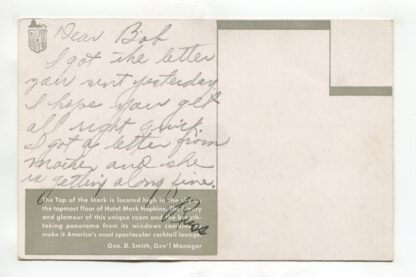 Dear Bob
I got the letter
you sent yesterday.
I hope you get
all right quick.
I got a letter from
mother and she
is getting along fine.
The Top of the Mark is located high in the sky on
the topmost floor of Hotel Mark Hopkins. The luxury
and glamour of this unique room and the breath-
taking panorama from its windows combine to
make it America's most spectacular cocktail lounge.
Geo. D. Smith, Gen'l Manager